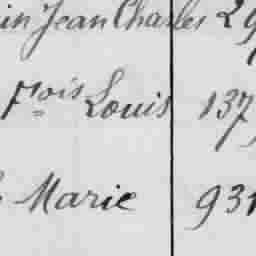 in Jean Charles 29
Fçois Louis 137
Marie 931